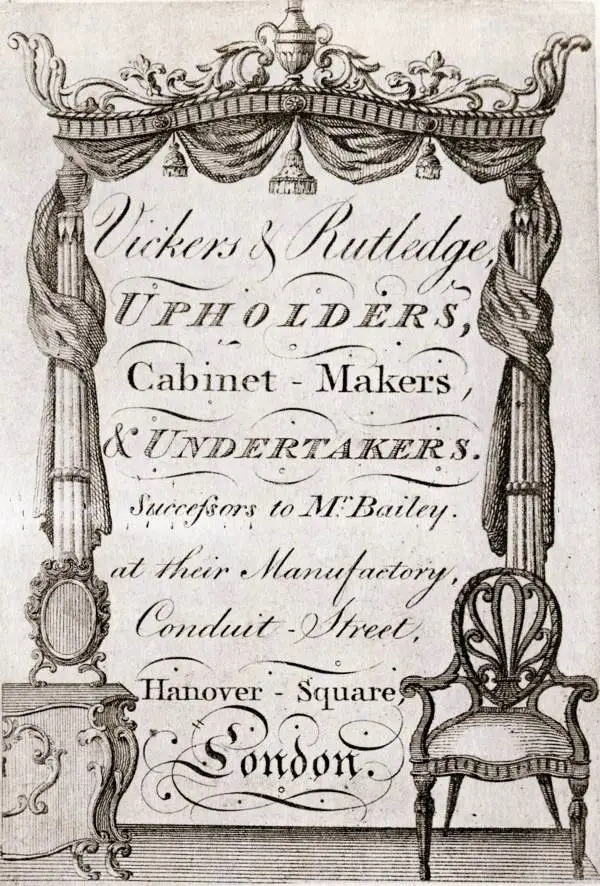 Vickers & Rutledge,
UPHOLDERS,
Cabinet - Makers,
& UNDERTAKERS.
Succeſsors to Mr. Bailey.
at their Manufactory,
Conduit - Street,
Hanover - Square,
London.